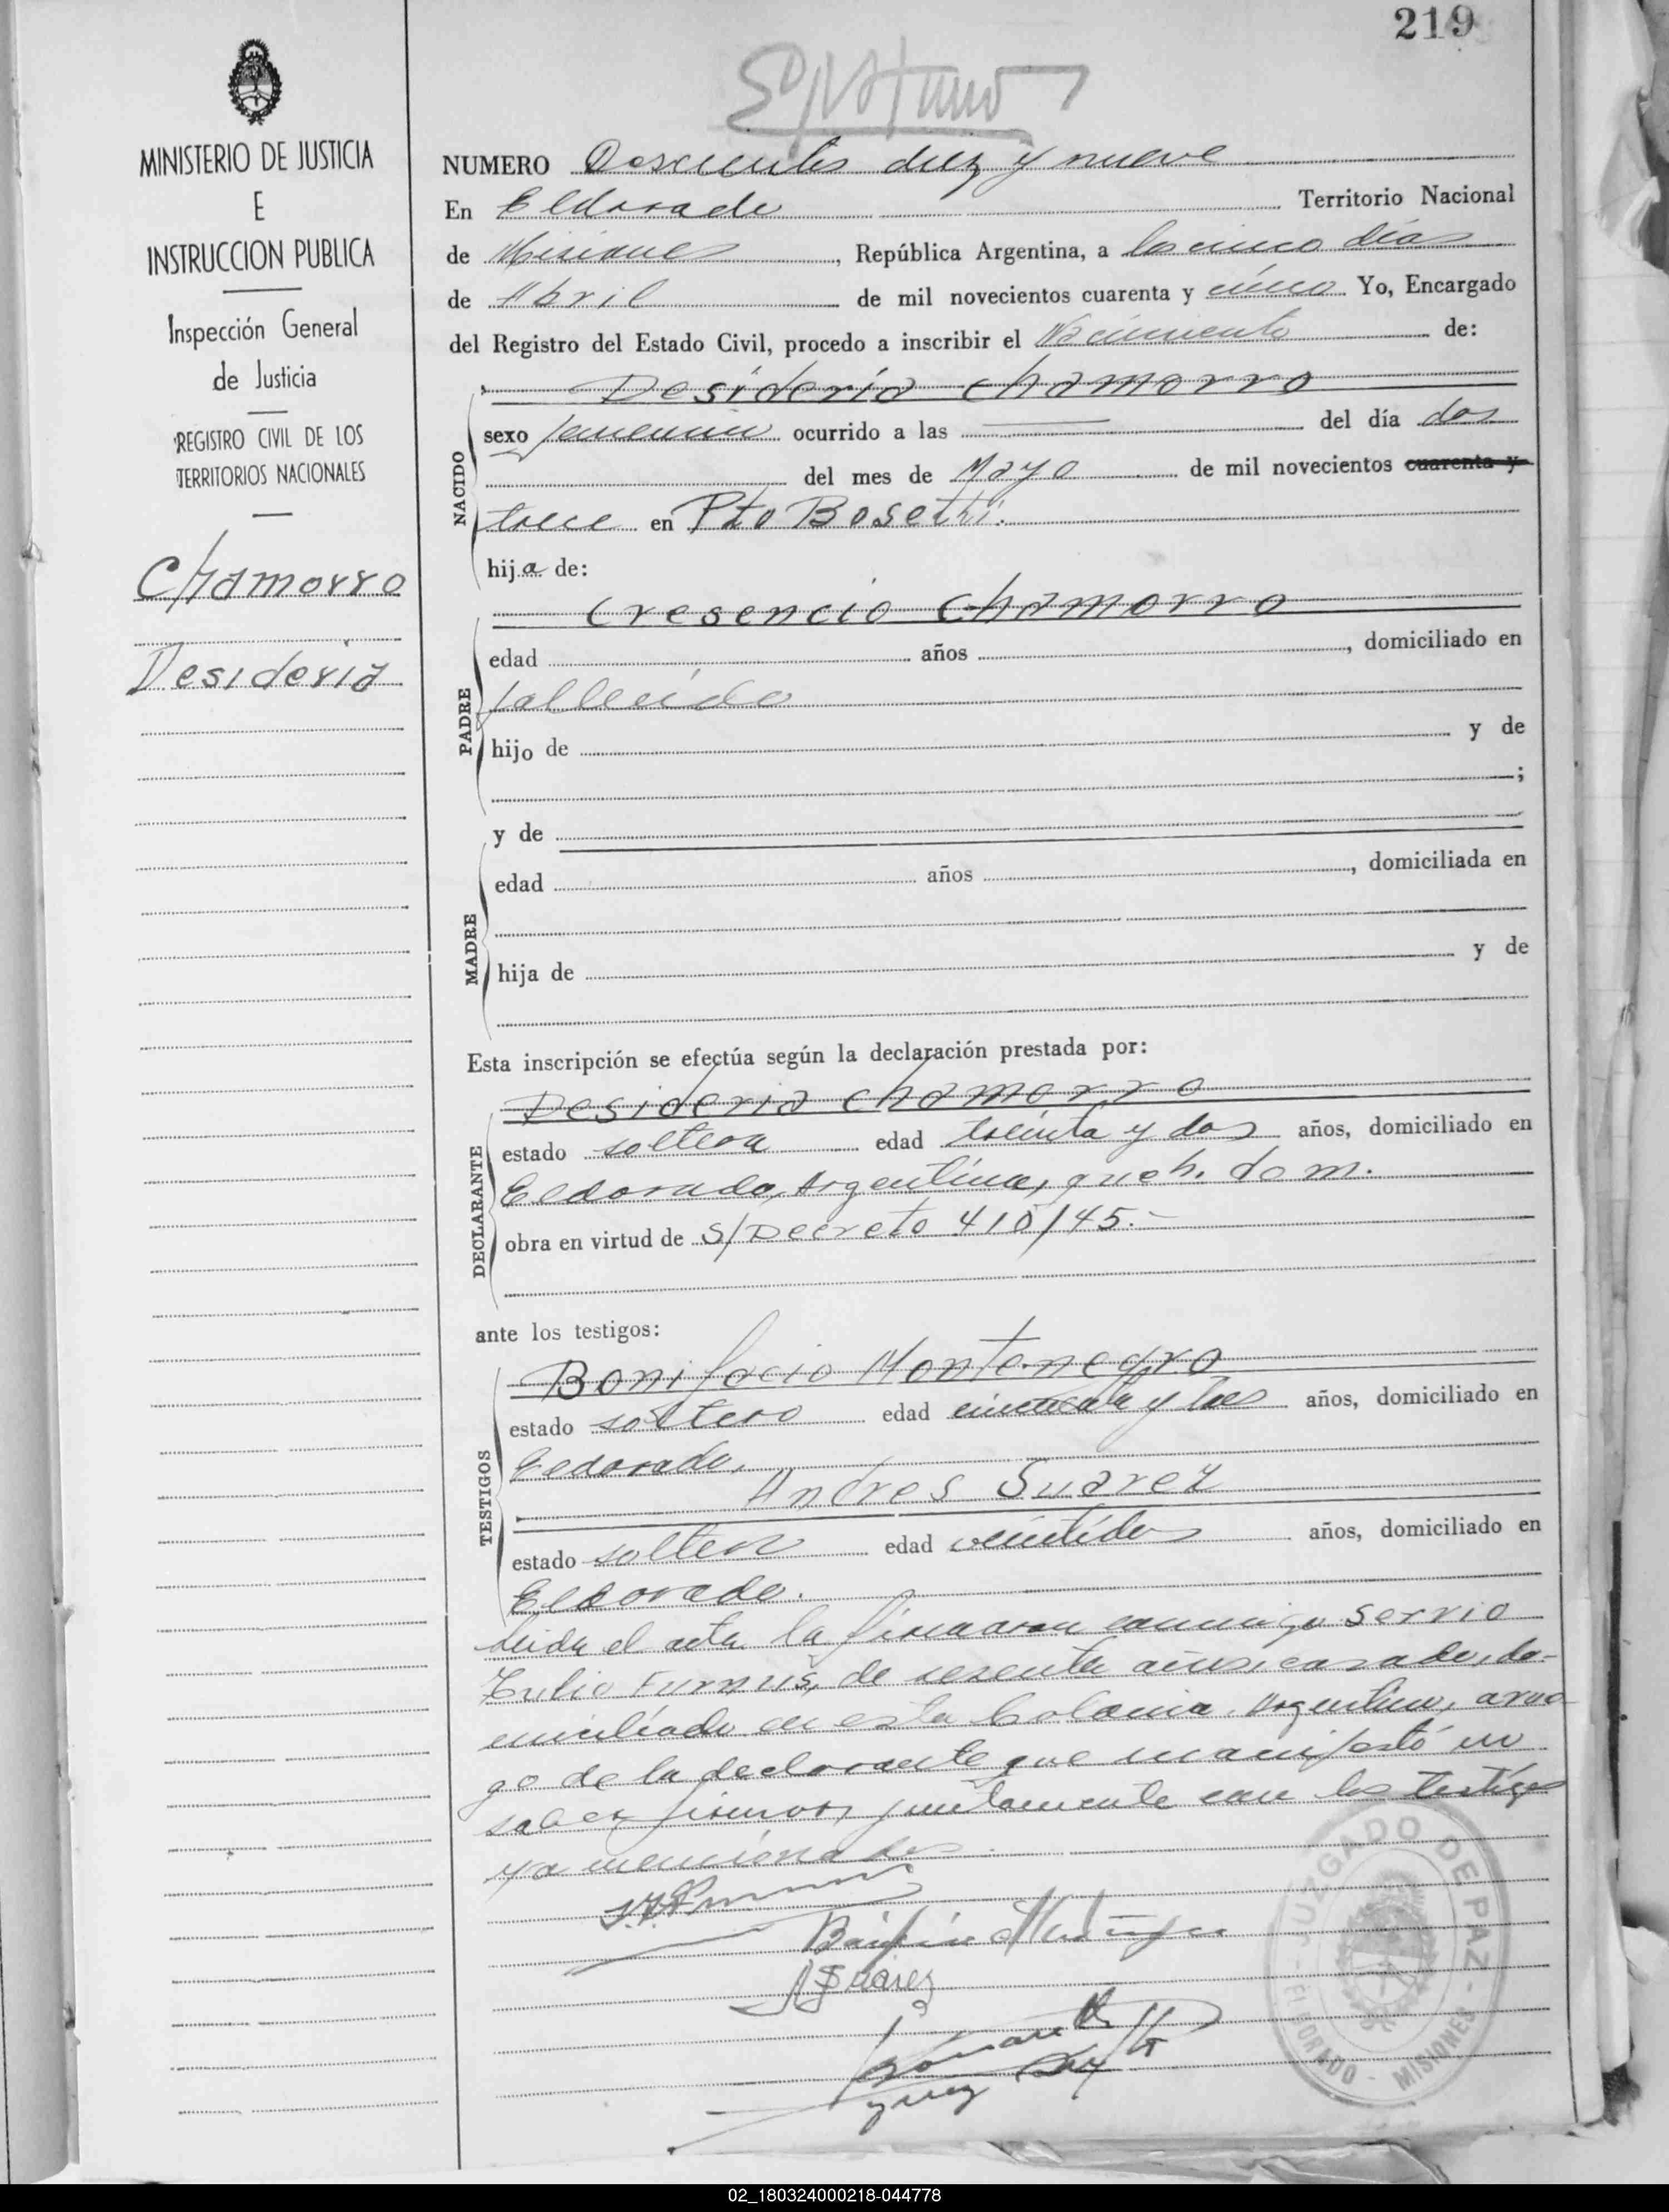 219
MINISTERIO DE JUSTICIA
E
INSTRUCCION PUBLICA
Inspección General
de Justicia
REGISTRO CIVIL DE LOS
TERRITORIOS NACIONALES
Chamorro
Desideria
NUMERO Doscientos diez y nueve
En Eldorado Territorio Nacional
de Misiones, República Argentina, a los cinco dias
de Abril de mil novecientos cuarenta y cinco Yo, Encargado
del Registro del Estado Civil, procedo a inscribir el Nacimiento de:
NACIDO
Desideria Chamorro
sexo femenino ocurrido a las del día dos
del mes de Mayo de mil novecientos cuarenta y
trece en Pto Bosetti.
hija de:
PADRE
Cresencio Chamorro
edad años, domiciliado en
fallecido
hijo de y de
;
MADRE
y de
edad años, domiciliada en
hija de y de
Esta inscripción se efectúa según la declaración prestada por:
DECLARANTE
Desideria Chamorro
estado soltera edad treinta y dos años, domiciliado en
Eldorado, Argentina, q. u e h. d o m.
obra en virtud de S/Decreto 410/45.-
ante los testigos:
TESTIGOS
Bonifacio Montenegro
estado soltero edad cincuenta y tres años, domiciliado en
Eldorado.
Andres Suarez
estado soltero edad veintidos años, domiciliado en
Eldorado.
Leida el acta la firmaron conmigo Servio
Tulio Furnus, de sesenta años, casado, do-
miciliado en esta Colonia, Argentino, a rue
go de la declarante que manifestó no
saber firmar, juntamente con los testigos
ya mencionados
A Suarez
JUZGADO DE PAZ - ELDORADO - MISIONES
02_180324000218-044778